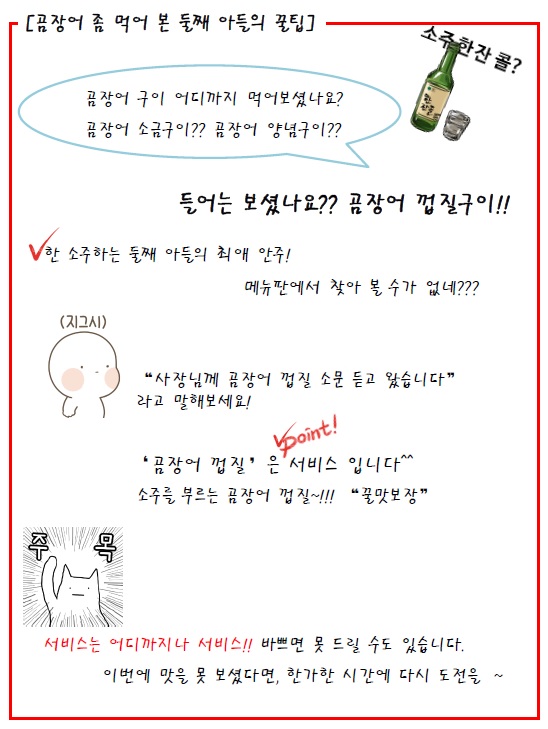 [곰장어 좀 먹어 본 둘째 아들의 꿀팁]
소주한잔 콜?
곰장어 구이 어디까지 먹어보셨나요?
곰장어 소금구이?? 곰장어 양념구이??
들어는 보셨나요?? 곰장어 껍질구이!!
한 소주하는 둘째 아들의 최애 안주!
메뉴판에서 찾아 볼 수가 없네???
(지그시)
“사장님께 곰장어 껍질 소문 듣고 왔습니다”
라고 말해보세요!
point!
‘곰장어 껍질’은 서비스 입니다^^
소주를 부르는 곰장어 껍질~!!! “꿀맛보장”
주 목
서비스는 어디까지나 서비스!! 바쁘면 못 드릴 수도 있습니다.
이번에 맛을 못 보셨다면, 한가한 시간에 다시 도전을 ~